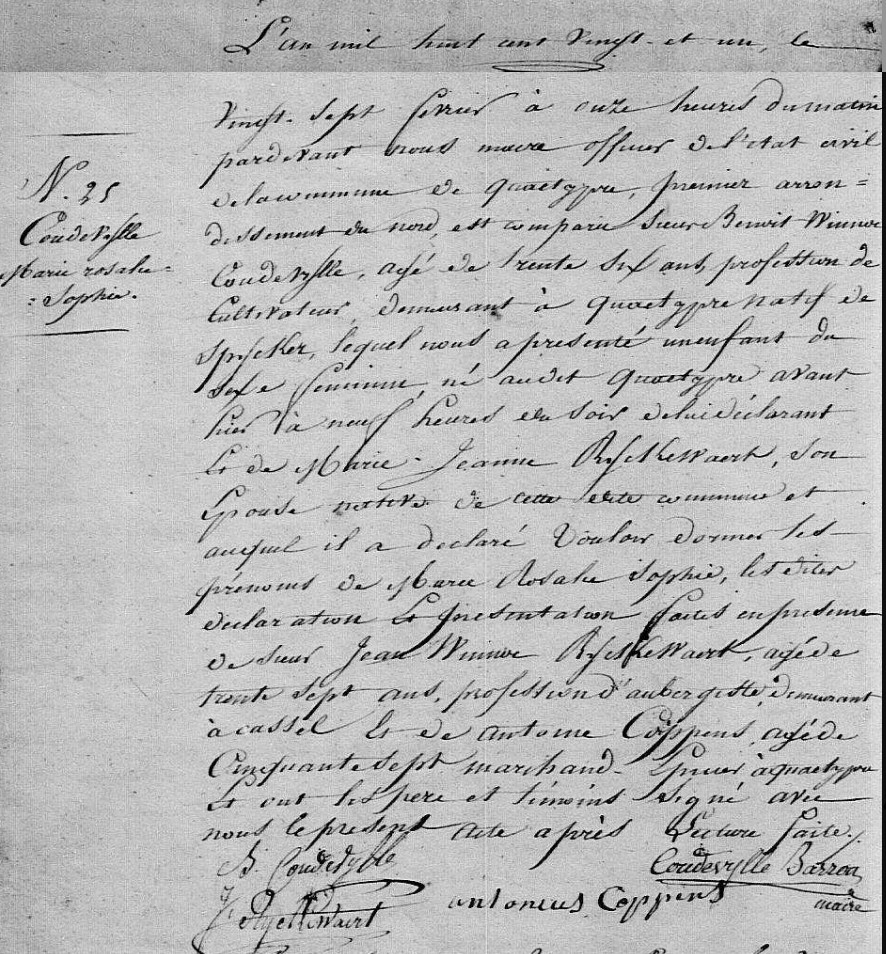 L'an mil huit cent vingt et un, le
vingt-sept fevrier à onze heures du matin
pardevant nous maire officier de l'etat civil
de la commune de quaetypre, premier arron=
dissement du nord, est comparu sieur Benoit Winnoc
Coudevylle, agé de trente six ans, profession de
Cultivateur, demeurant à quaetypre natif de
Spycker, lequel nous a presenté un enfant du
sexe feminin, né audit quaetypre avant
hier à neuf heures du soir de lui déclarant
Et de Marie-Jeanne Ryckewaert, son
Epouse native de cette dite commune et
auquel il a declaré vouloir donner les
prénoms de Marie Rosalie Sophie, les dites
declaration Et presentation faites en presence
de sieur Jean Winnoc Ryckewaert, agé de
trente sept ans, profession d'aubergiste, demeurant
à cassel Et de antoine Coppens agé de
Cinquante sept marchand Epicier à quaetypre
Et ont les pere et témoins signé avec
nous le present acte après Lecture faite.
N. 25
Coudevylle
Marie rosalie=
=Sophie.
B. Coudevylle
Coudevylle Barroa
maire
J. Ryckewaert
antonius Coppens